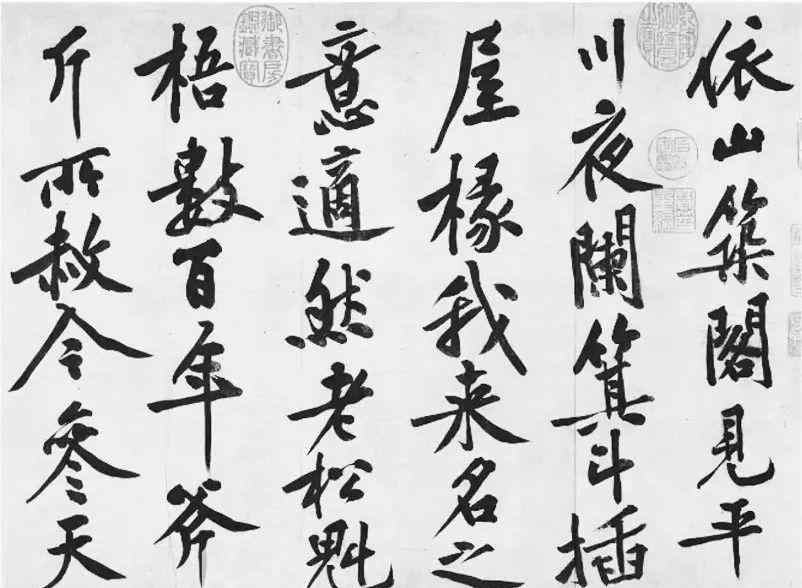 依山築閣見平
川夜闌箕斗插
屋椽我來名之
意適然老松魁
御書房鑑藏寶
梧數百年斧
斤所赦今參天